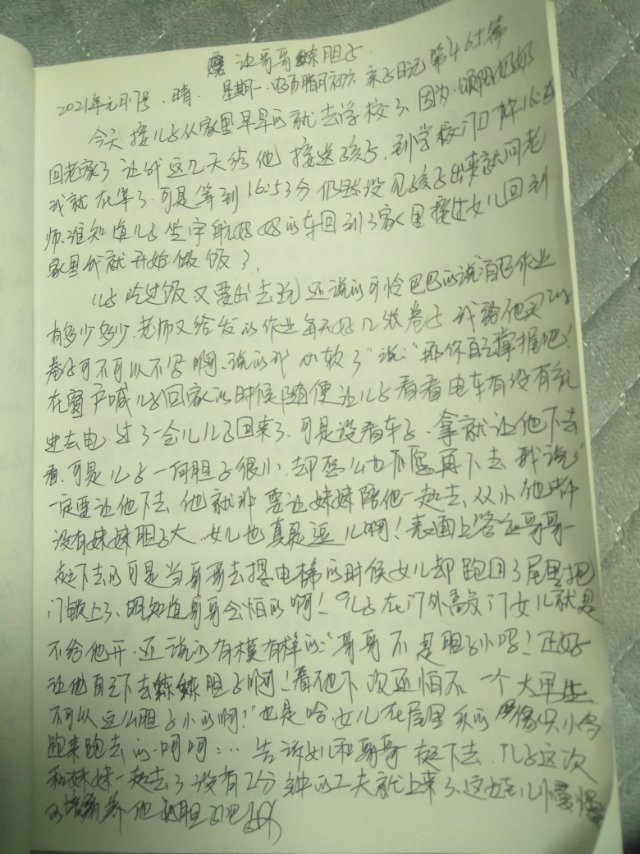 让哥哥练胆子
2021年元月18号 晴 星期一 农历腊月初六 亲子日记第465篇
今天接儿子从家里早早的就去学校了、因为奶奶
回老家了让我这几天给他接送孩子,到学校门口
我就在等了、可是等到16:53分仍然没见孩子出来就问老
师、谁知道儿子坐的车回到了家里接过女儿回到
家里我就开始做饭了,
儿子吃过饭又要出去玩还说的可怜巴巴的说消作业
有多少多少、老师又给发的作业每天好几张卷子我给他买的
卷子可不可以不写啊、说的我心软了“说:”那你自己掌握吧!
在窗户喊儿子回家的时候随便让儿子看看电车有没有充
进去电、过了一会儿儿子回来了、可是没看车子、拿就让他下去
看、可是儿子一向胆子很小、却怎么也不愿再下去 我说
一定要让他下去、他就非要让妹妹陪他一起去、从小他都
没有妹妹胆子大、女儿也真是逗儿啊!表面上答应哥哥一
起下去的可是当哥哥去摁电梯的时候女儿却跑回了屋里把
门锁上了、明知道哥哥会怕的啊!儿子在门外敲门女儿就是
不给他开、还说的有模有样的“哥哥不是胆子小吗!正好
让他自己下去练练胆子啊!看他下次还怕不 一个大男生
不可以这么胆子小的啊!”也是哈、女儿在屋里乐的像只小鸟
跑来跑去的、呵呵… 告诉女儿和哥哥一起下去、儿子这次
和妹妹一起去了没有2分钟的工夫就上来了、这
他 胆子吧